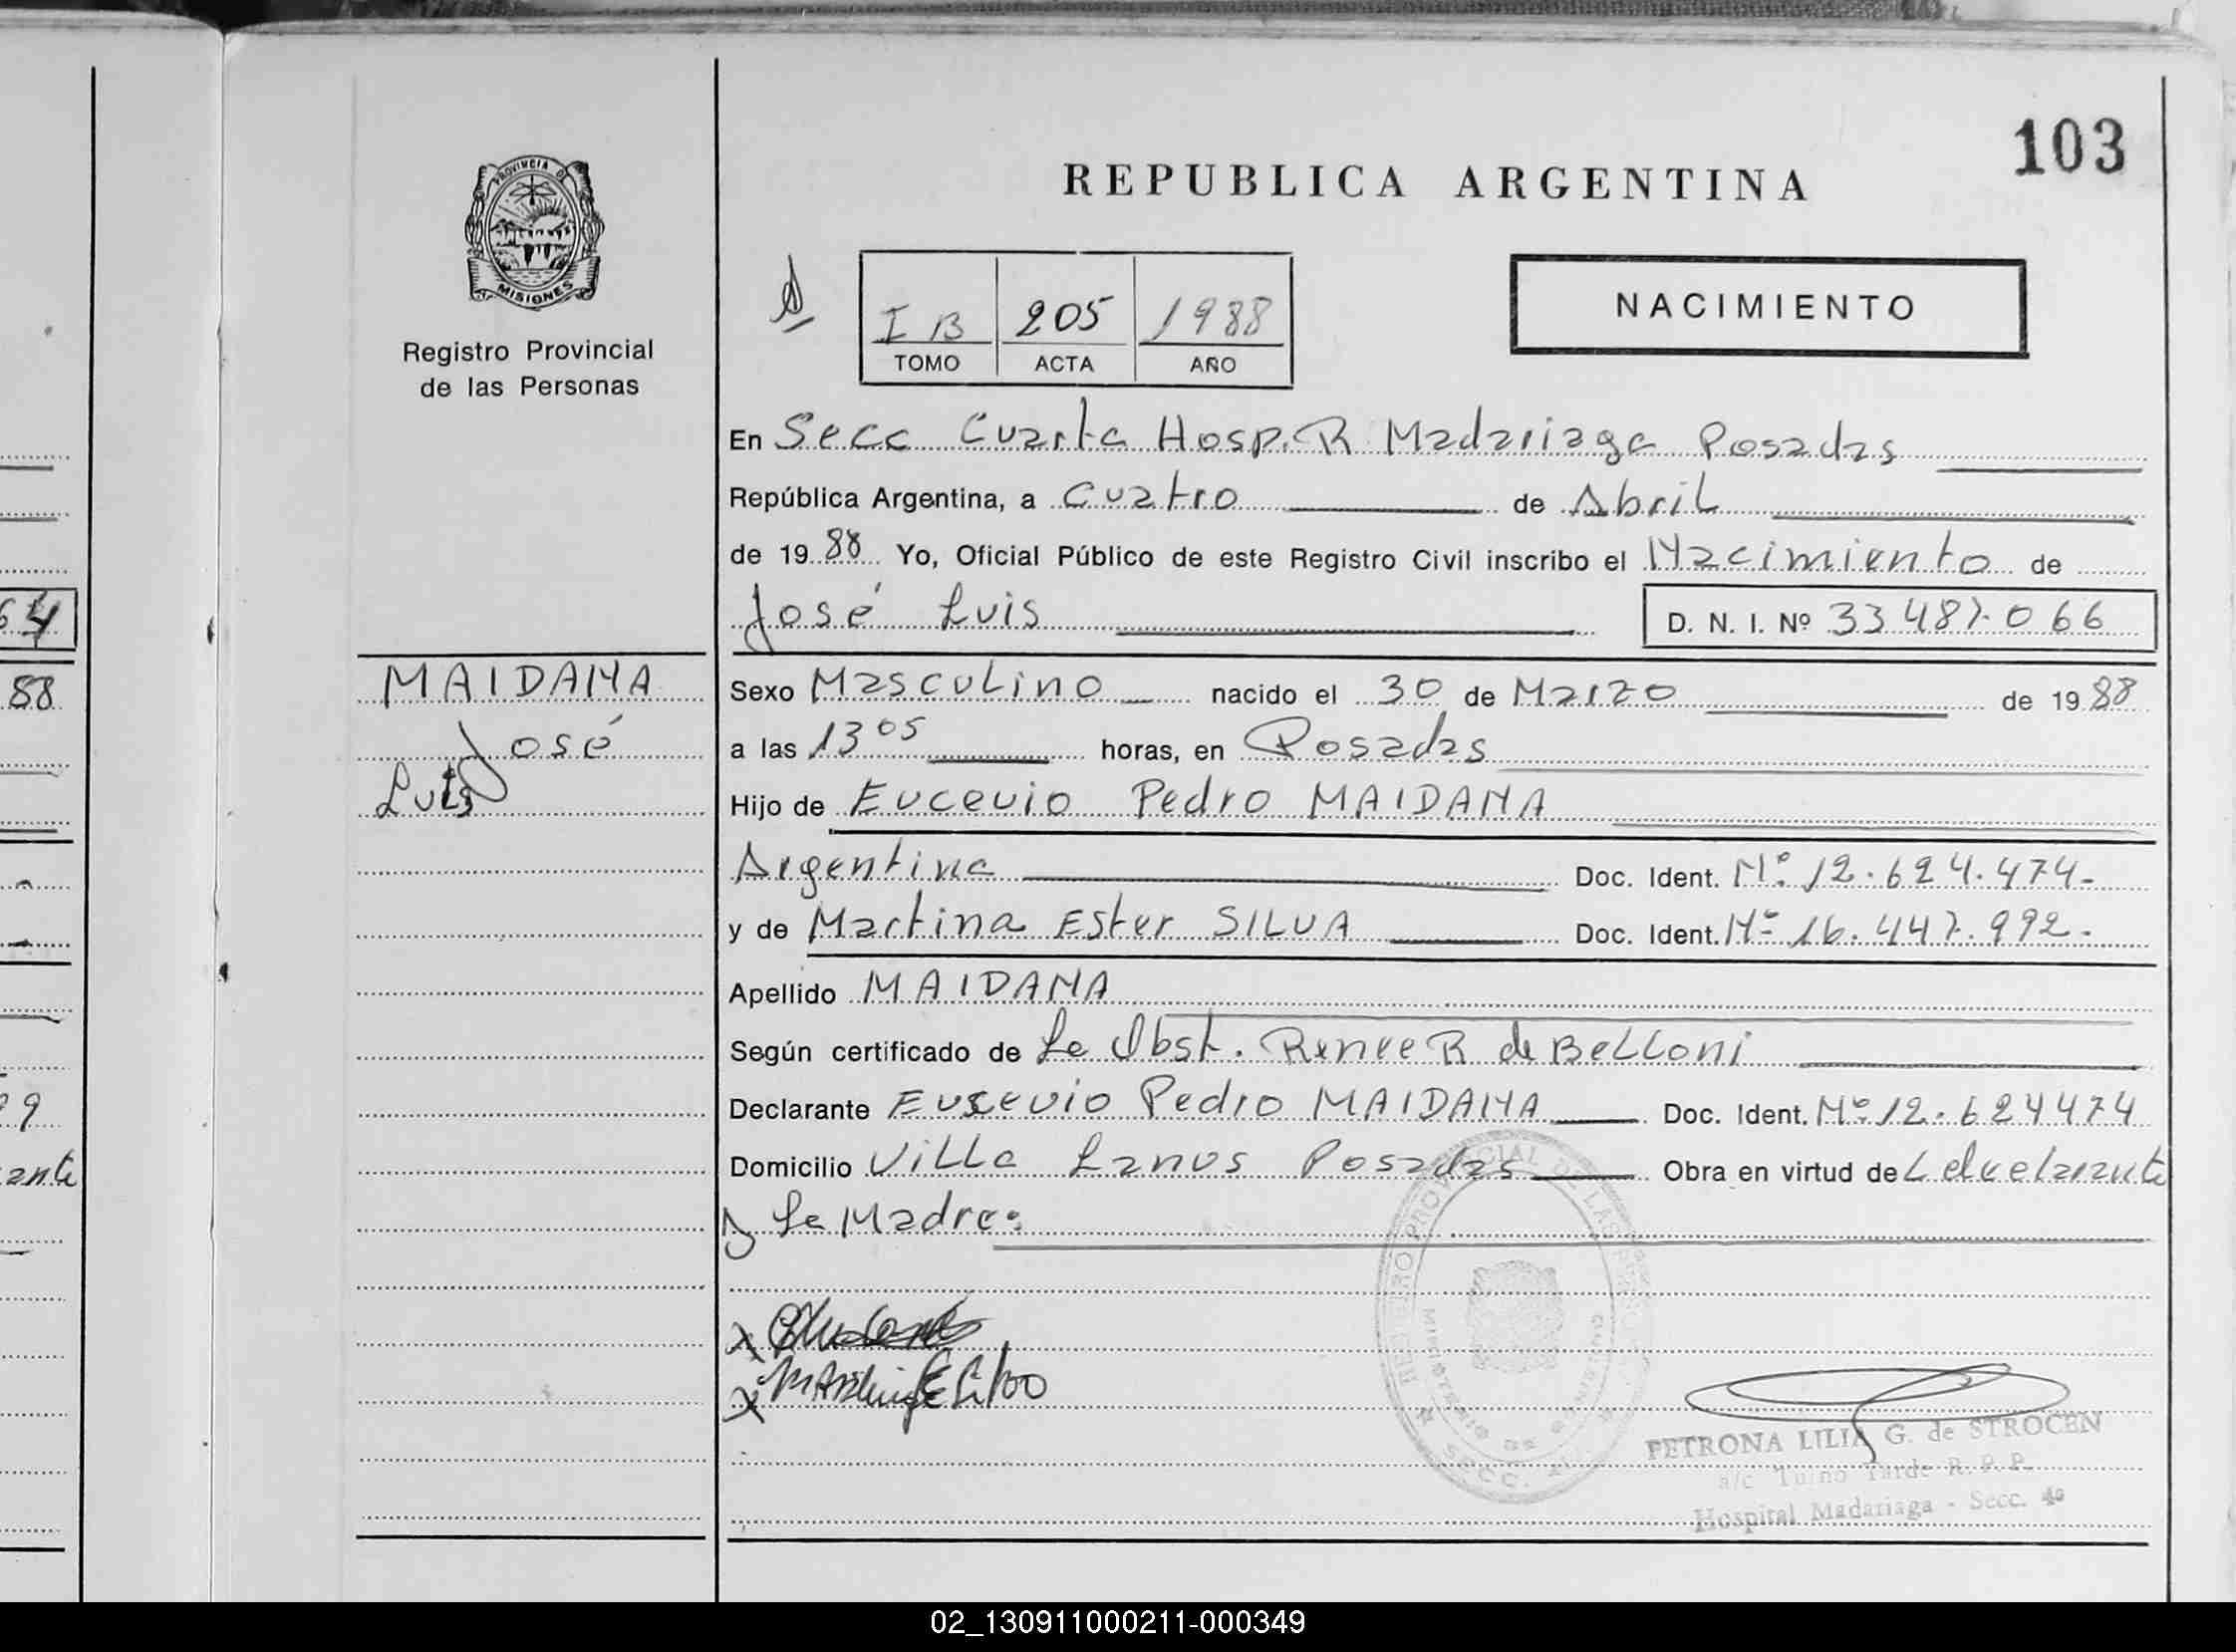 103
REPUBLICA ARGENTINA
PROVINCIA DE
MISIONES
Registro Provincial
de las Personas
I B 205 1988
TOMO ACTA AÑO
NACIMIENTO
En Secc Cuarta Hosp. R Madariaga Posadas
República Argentina, a Cuatro de Abril
de 19 88 Yo, Oficial Público de este Registro Civil inscribo el Nacimiento de
José Luis D. N. I. Nº 33 487.066
64
MAIDANA
José
Luis
Sexo Masculino nacido el 30 de Marzo de 19 88
a las 13 05 horas, en Posadas
Hijo de Eucevio Pedro MAIDANA
Argentina Doc. Ident. Nº. 12.624.474-
y de Martina Ester SILVA Doc. Ident. Nº 16.447.992-
Apellido MAIDANA
Según certificado de La Obst. Renee R de Belloni
Declarante Eusevio Pedro MAIDANA Doc. Ident. Nº 12.624474
Domicilio Villa Lanus Posadas Obra en virtud de
y La Madre:
88
PETRONA LILIA G. de STROCEN
a/c Turno Tarde R. P. P.
Hospital Madariaga - Secc. 4º
02_130911000211-000349